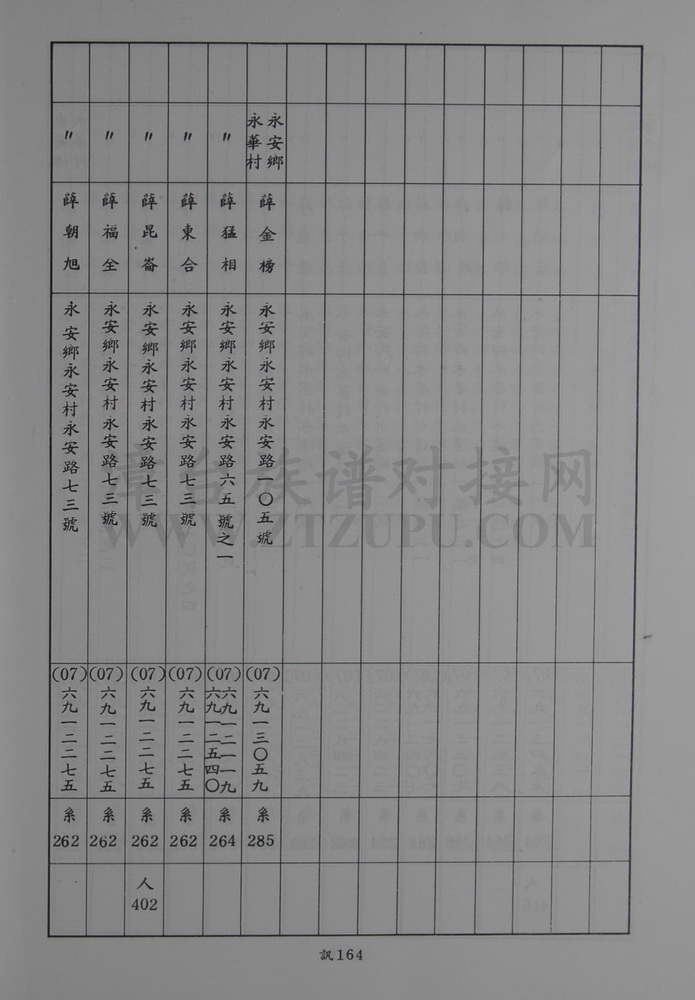 永安鄉
永華村
薛金榜
永安鄉永安村永安路一〇五號
(07)六九一三〇五九
系285
〃
薛猛相
永安鄉永安村永安路六五號之一
(07)六九一二一一九
六九一二五四〇
系264
〃
薛東合
永安鄉永安村永安路七三號
(07)六九一二二七五
系262
〃
薛昆崙
永安鄉永安村永安路七三號
(07)六九一二二七五
系262
人402
〃
薛福全
永安鄉永安村永安路七三號
(07)六九一二二七五
系262
〃
薛朝旭
永安鄉永安村永安路七三號
(07)六九一二二七五
系262
訊164
章台族谱对接网
WWW.ZTZUPU.COM